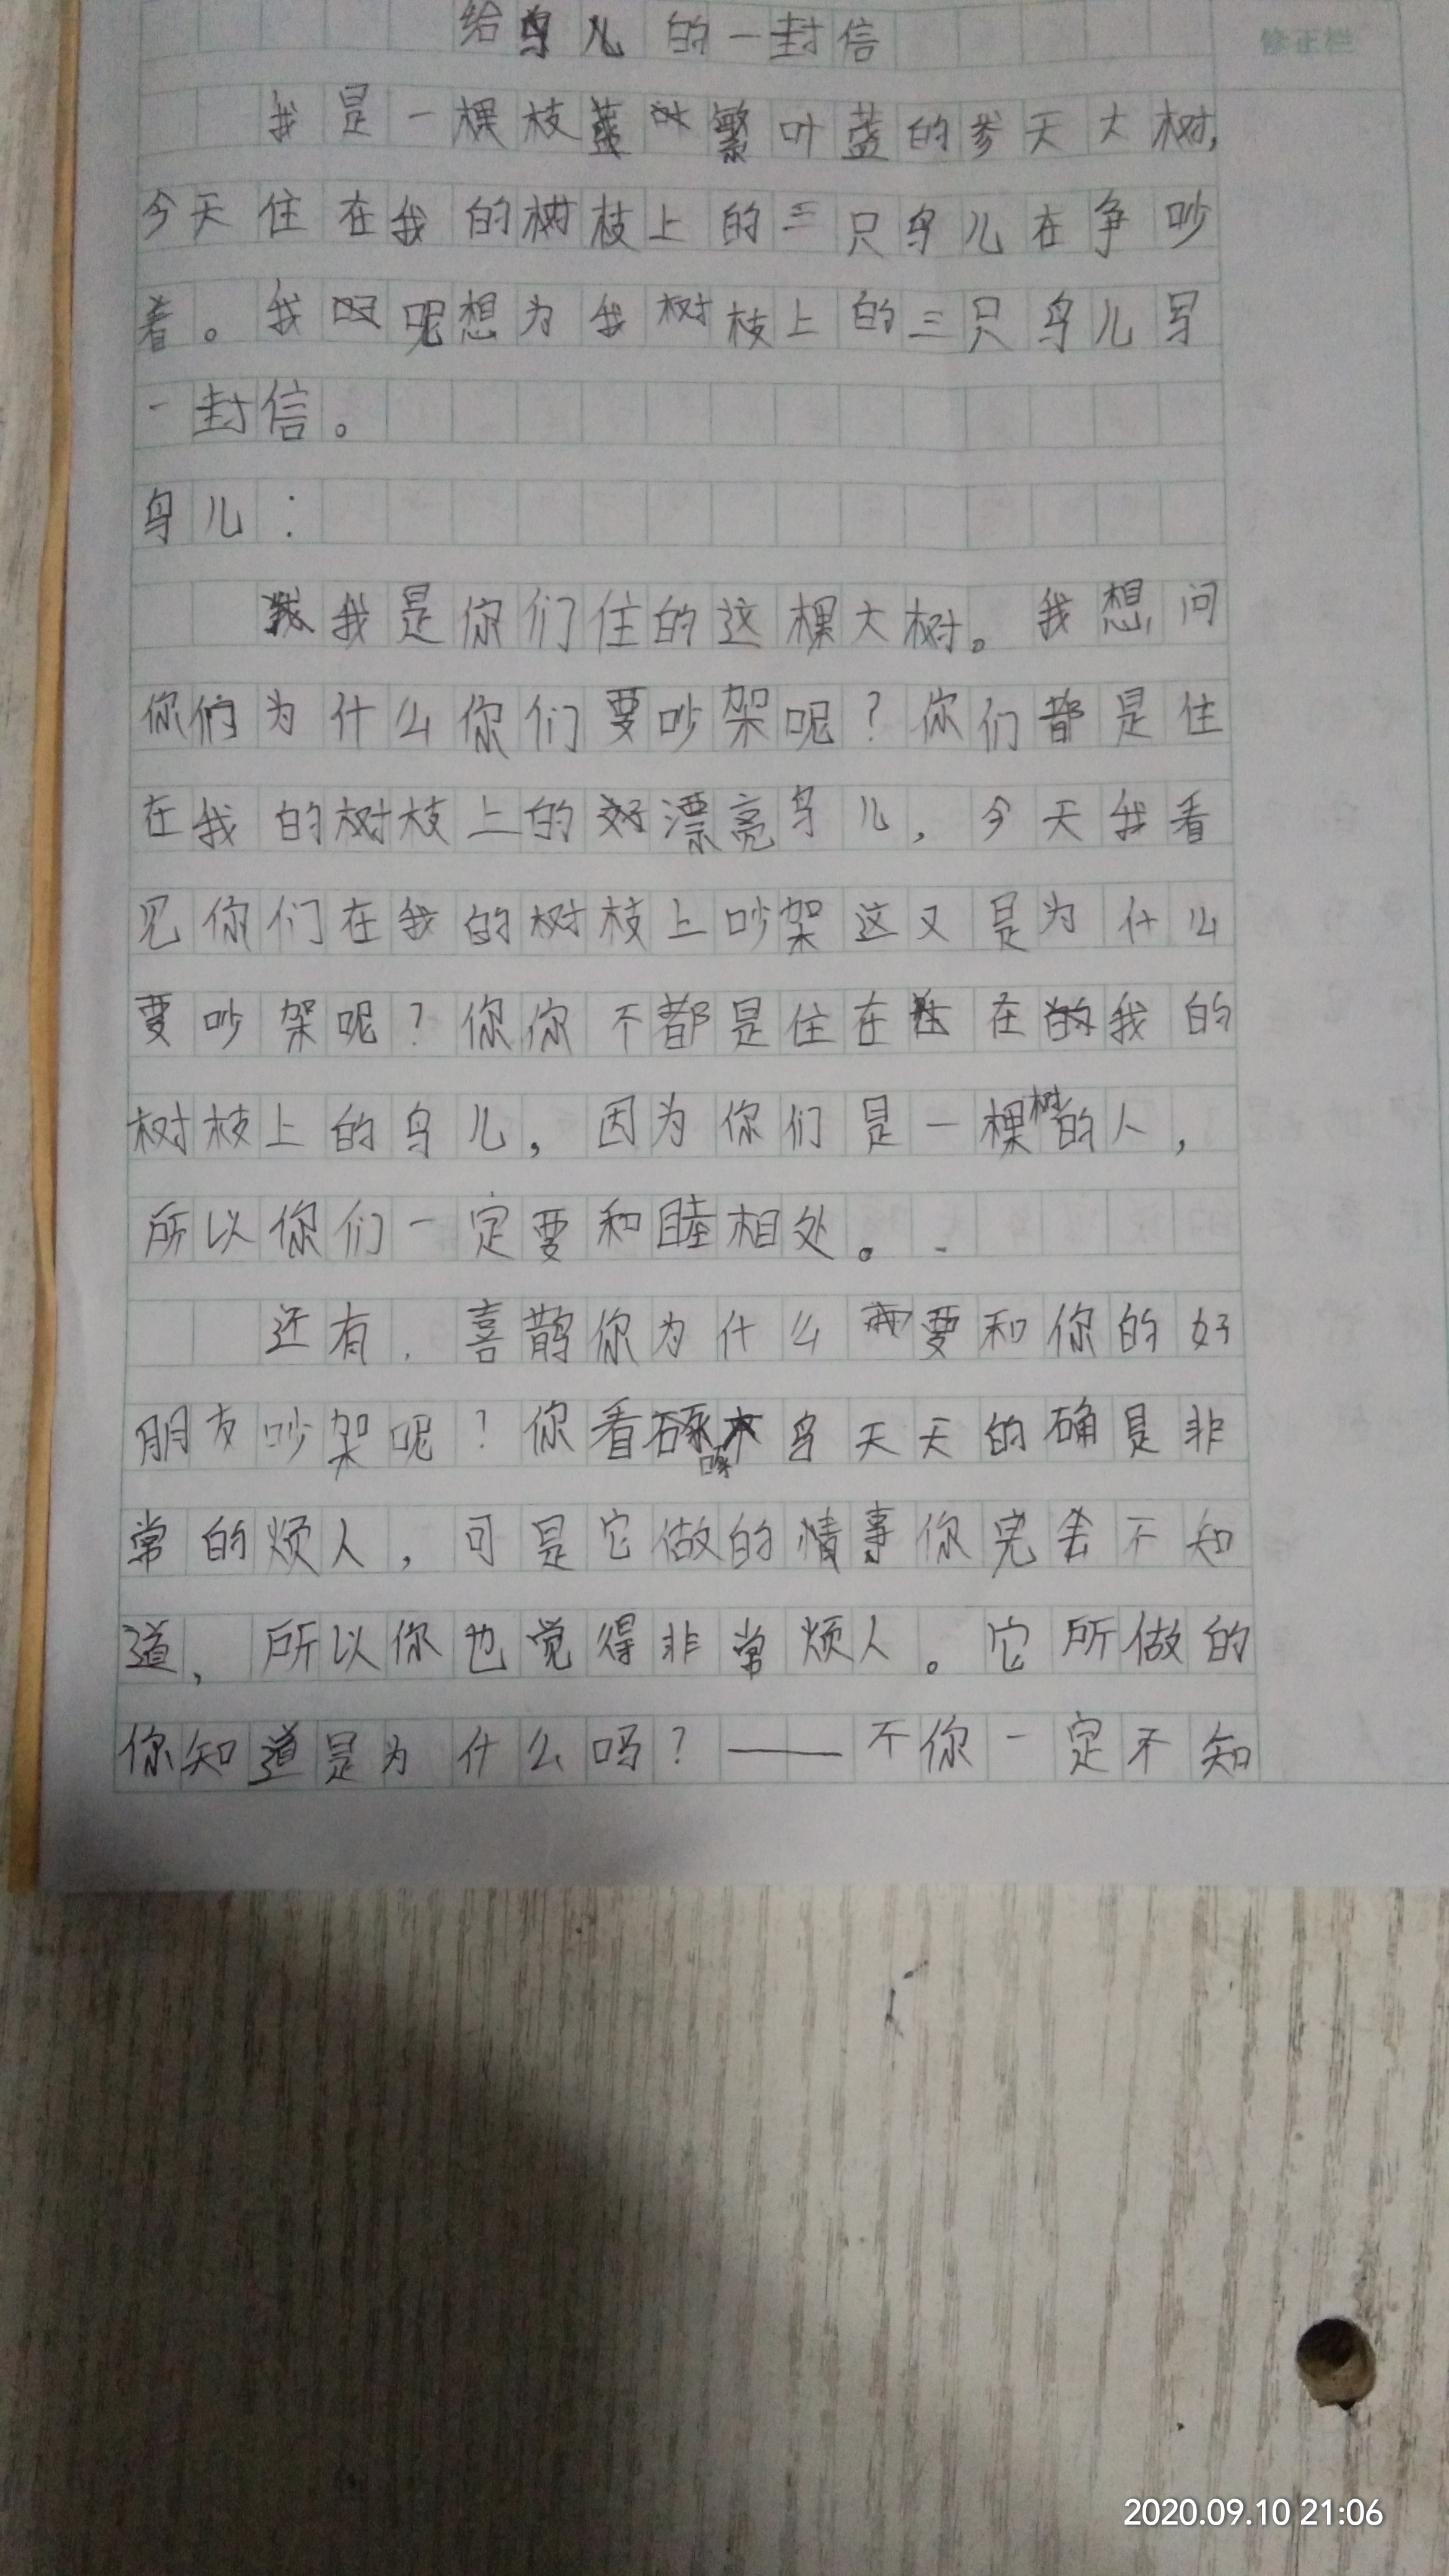 给鸟儿的一封信
修正栏
我是一棵枝繁叶盖的参天大树,
今天住在我的树枝上的三只鸟儿在争吵
着。我呢想为我树枝上的三只鸟儿写
一封信。
鸟儿:
我是你们住的这棵大树。我想问
你们为什么你们要吵架呢?你们都是住
在我的树枝上的漂亮鸟儿,今天我看
见你们在我的树枝上吵架这又是为什么
要吵架呢?你你不都是住在在我的
树枝上的鸟儿,因为你们是一棵树的人,
所以你们一定要和睦相处。
还有,喜鹊你为什么要和你的好
朋友吵架呢?你看啄木鸟天天的确是非
常的烦人,可是它做的情事你完全不知
道,所以你也觉得非常烦人。它所做的
你知道是为什么吗?——不你一定不知
2020.09.10 21:06